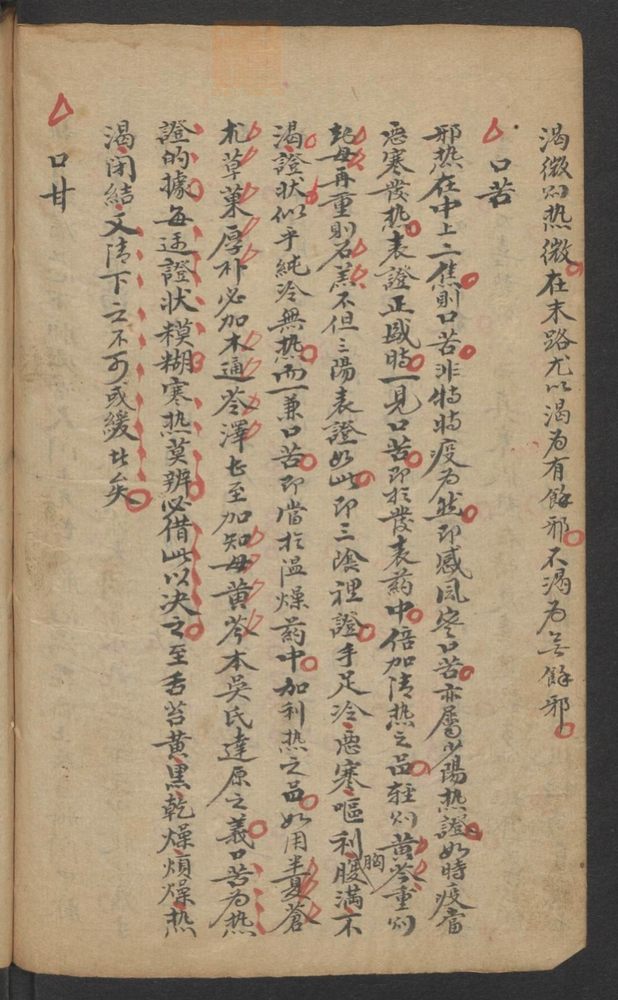 渴微則热微在末路尤以渴為有餘邪不渴為無餘邪
口苦
邪热在中上二焦則口苦非特時疫為然即感風寒口苦亦屬少陽热證如時疫當
惡寒發热表證正盛時一見口苦即於發表药中倍加清热之品輕則黄芩重則
知母再重則石羔不但三陽表證如此即三陰裡證手足冷惡寒嘔利胸腹滿不
渴證狀似乎純冷無热而一兼口苦即當於温燥药中加利热之品如用半夏蒼
朮草菓厚朴必加木通芩澤甚至加知母黄芩本吳氏達原之義口苦為热
證的據每遇證狀糢糊寒热莫辨必借此以决之至舌苔黄黑乾燥煩燥热
渴闭結又清下之不可或緩者矣
口甘